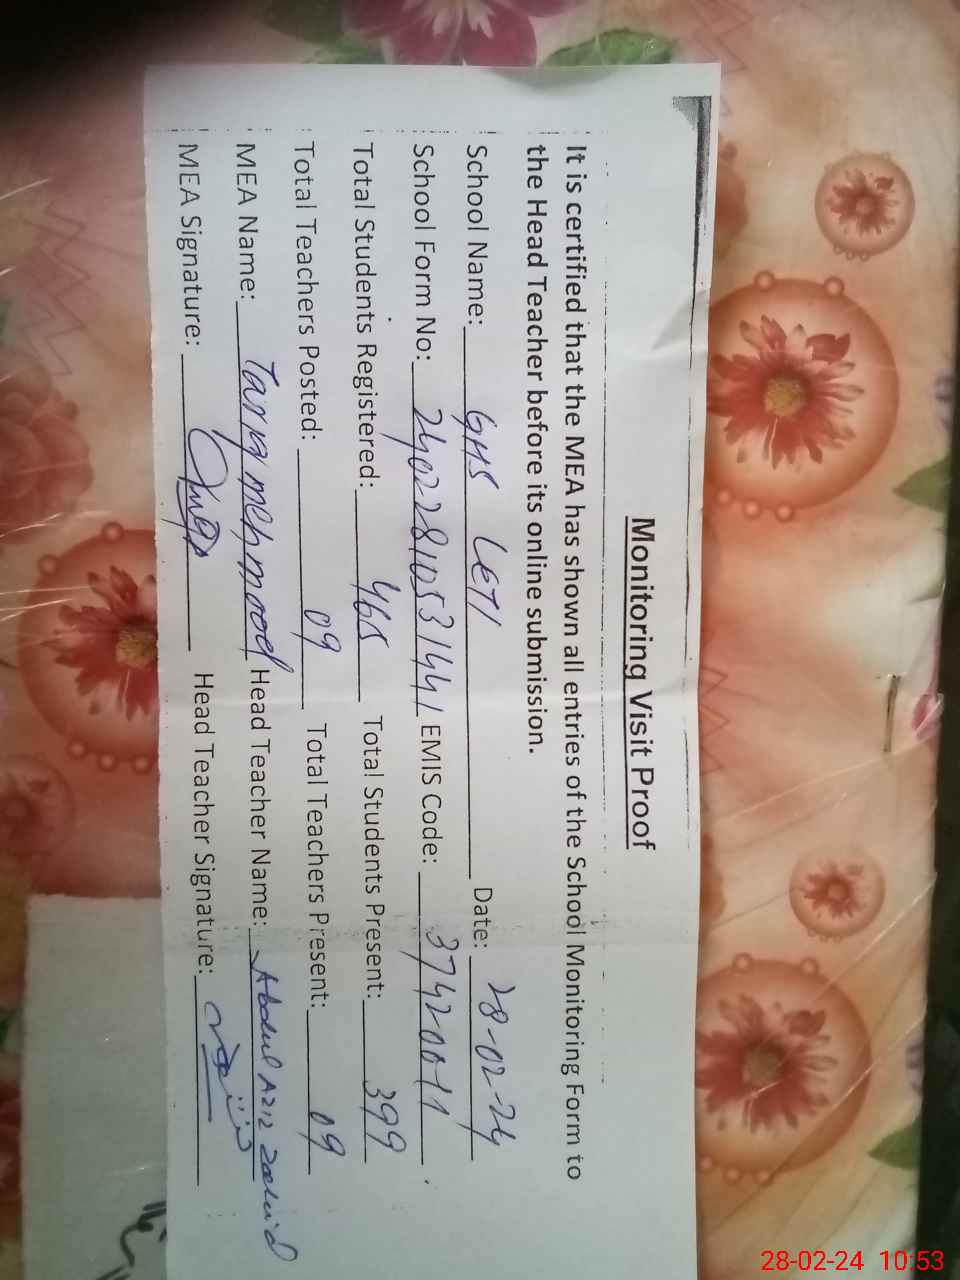 Monitoring Visit Proof
It is certified that the MEA has shown all entries of the School Monitoring Form to
the Head Teacher before its online submission.
School Name: GHS LETI Date: 28-02-24
School Form No: 24022810531441 EMIS Code: 37420011
Total Students Registered: 465 Total Students Present: 399
Total Teachers Posted: 09 Total Teachers Present: 09
MEA Name: Tariq mehmood Head Teacher Name: Abdul Aziz
MEA Signature: Head Teacher Signature:
28-02-24 10:53